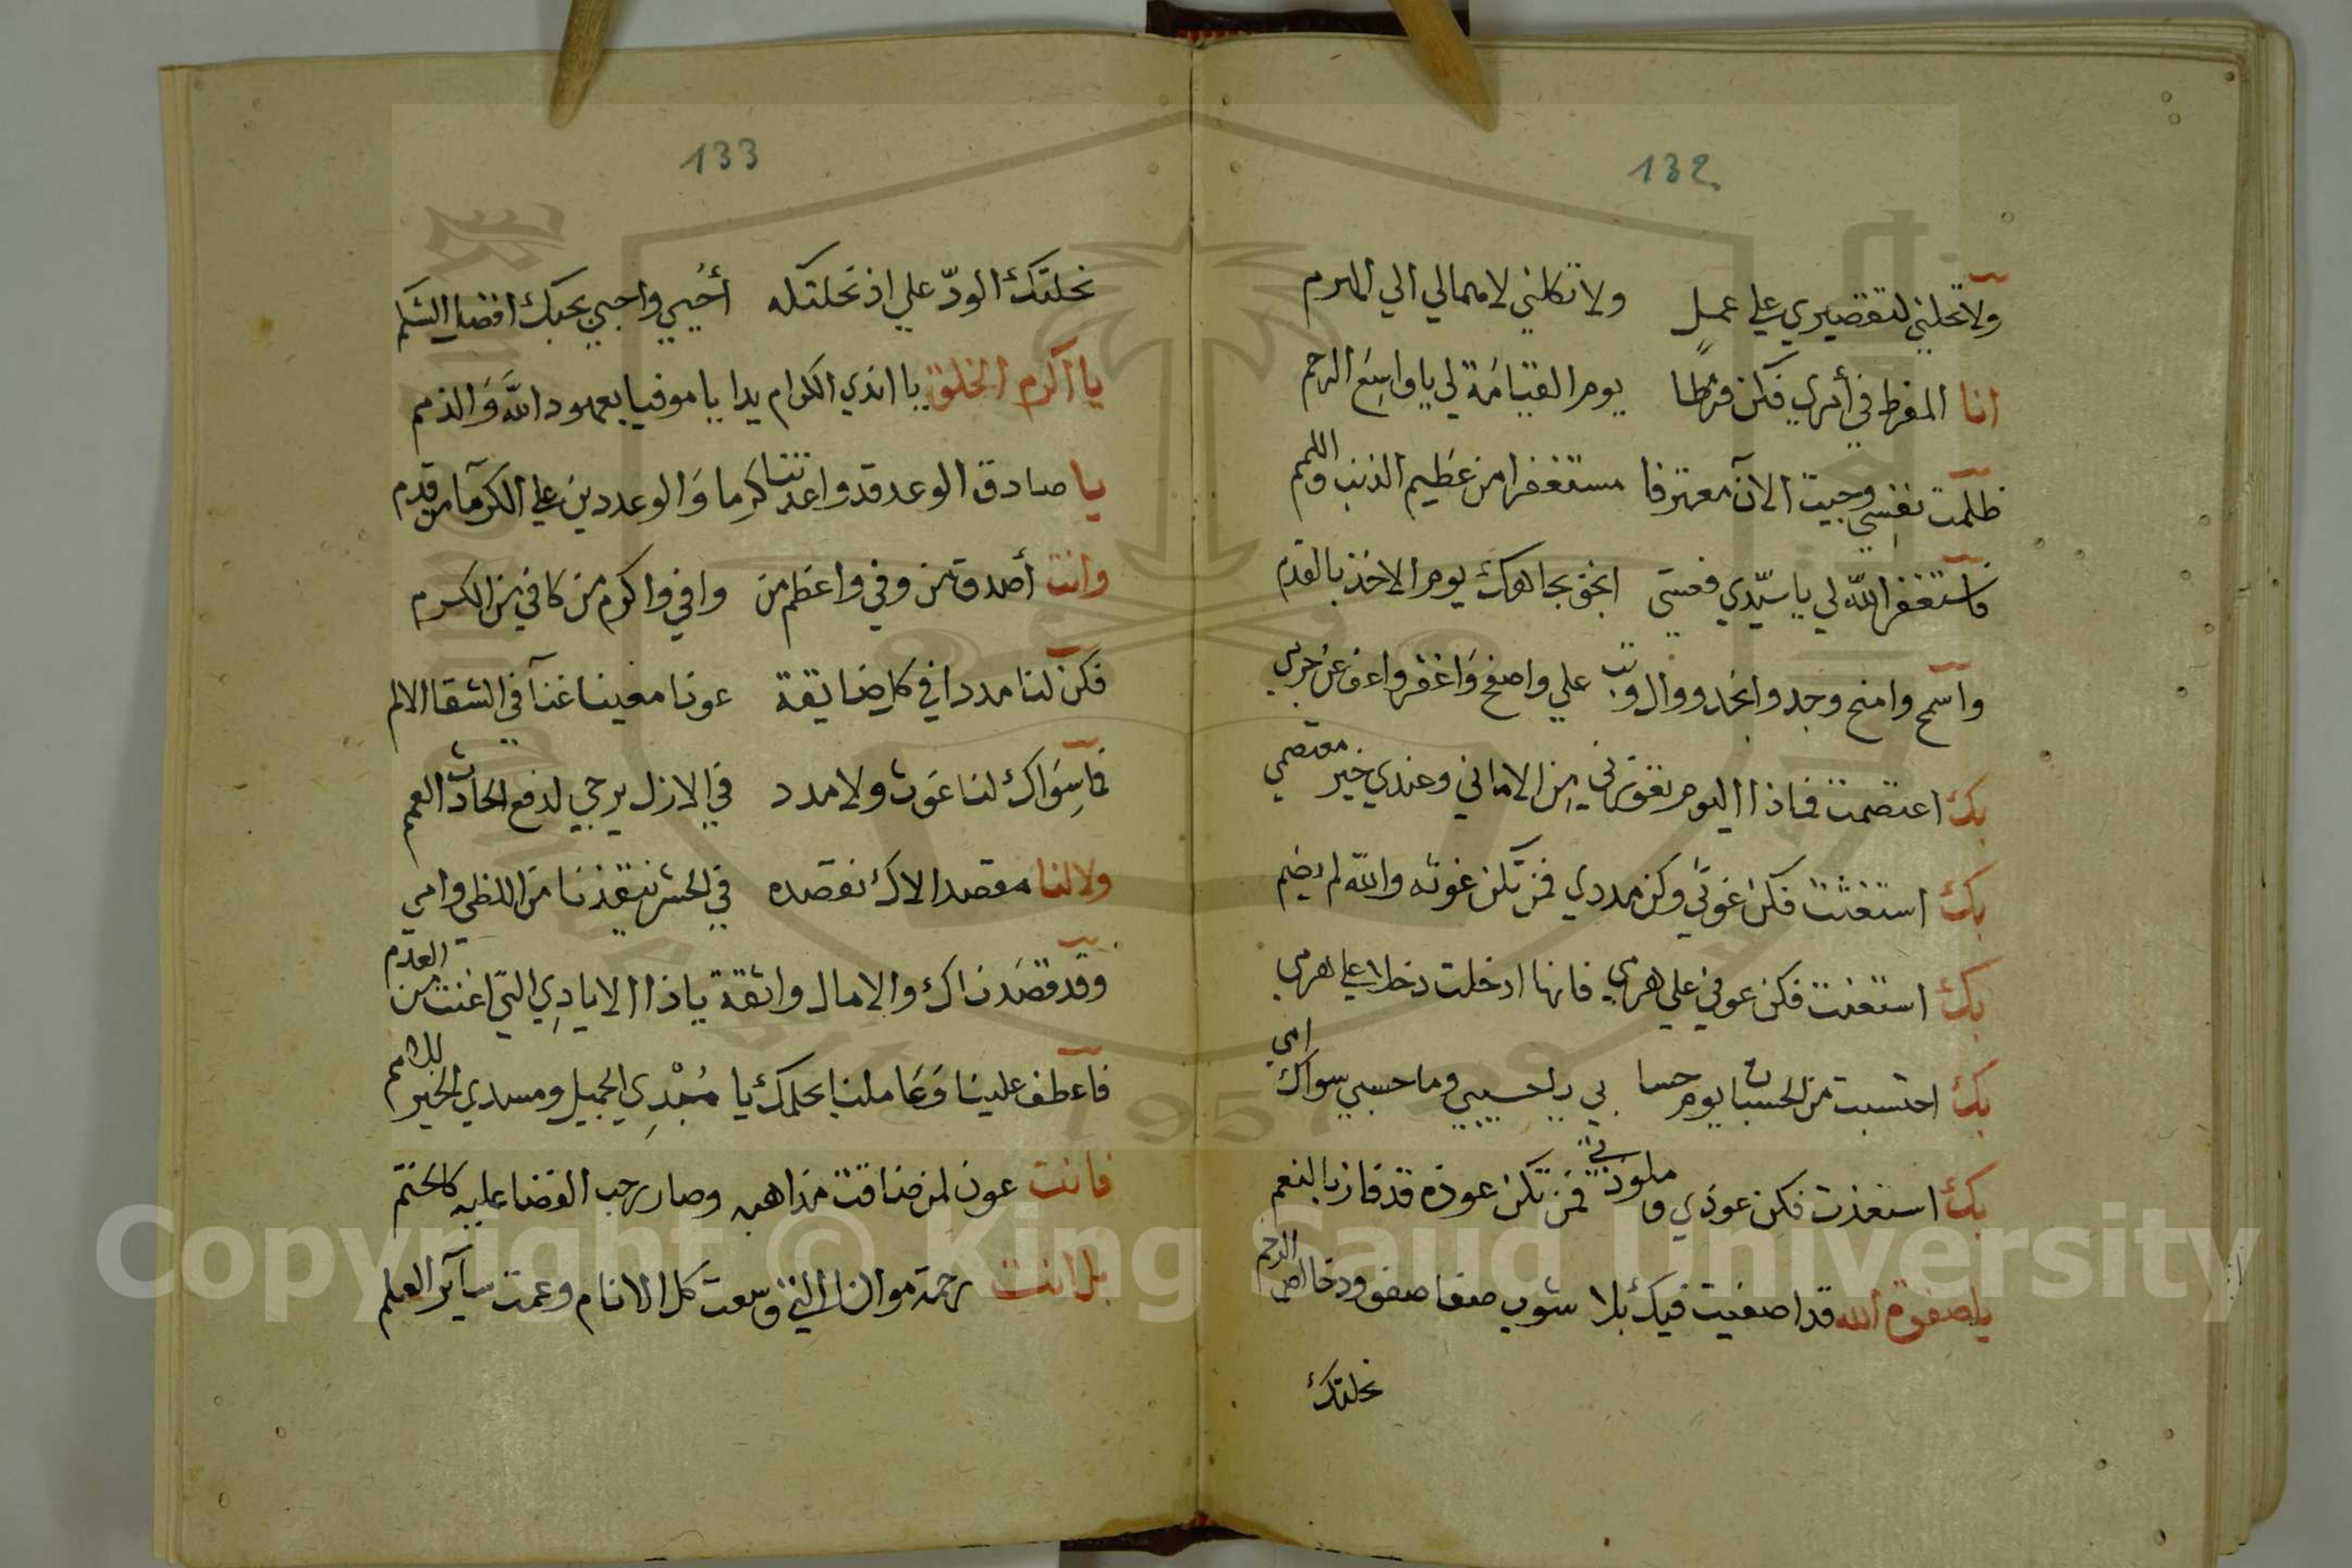 132
ولا تحلني لتقصيري علي عمل ولا تكلني لامهالي الي الهرم
انا المفرط في أمري فكن فرطا يوم القيامة لي يا واسع الرحم
ظلمت نفسي وجيت الآن معترفا مستغفرا من عظيم الذنب واللمم
فاستغفر الله لي يا سيدي فعسي انجو بجاهك يوم الاخذ بالقدم
واسمح وامنح وجد وانجد ووال وتب علي واصفح واغفر واعف عن جرمي
بك اعتصمت فماذا اليوم من الاماني وعندي خير معتصمي
بك استغثت فكن غوثي وكن مددي فمن تكن غوثه والله لم يضم
بك استعنت فكن عوني علي هرمي فانها ادخلت دخلا علي هرمي
بك احتسبت من الحسبان يوم حسابي يا حسيبي وما حسبي سواك امي
بك استعذت فكن عوذي وملوذتي فمن تكن عوذه قد فاز بالنعم
يا صفوة الله قد اصفيت فيك بلا شوب صفا صفو ود خالص الرخم
نحلتك
133
نحلتك الود علي اذ نحلتك له أحيي واجيي بحبك افضل الشكم
يا اكرم الخلق يا اندي الكرام يدا يا موفيا بعهود الله والذمم
يا صادق الوعد قد واعدتنا كرما والوعد دين علي الكرما من قدم
وانت أصدق من وفي واعظم من وافي واكرم من كافي من الكرم
فكن لنا مددا في كل ضايقة عونا معينا غنا في الشقا الالم
فما سواك لنا غوث ولا مدد في الازل يرجي لدفع الحادث العمم
ولا لنا مقصد الاك نقصده في الحشر ينقذنا من اللظي وامي
وقد قصدناك والامال واثقة يا ذا الايادي التي اغنت من العدم
فاعطف علينا وعاملنا بحلمك يا مبدي الجميل ومسدي الخير للامم
فانت عون لمن ضاقت مذاهبه وصار رحب الفضا عليه كالختم
بل انت رحمة مولانا التي وسعت كل الانام وعمت سآير العلم
Copyright © King Saud University
1957